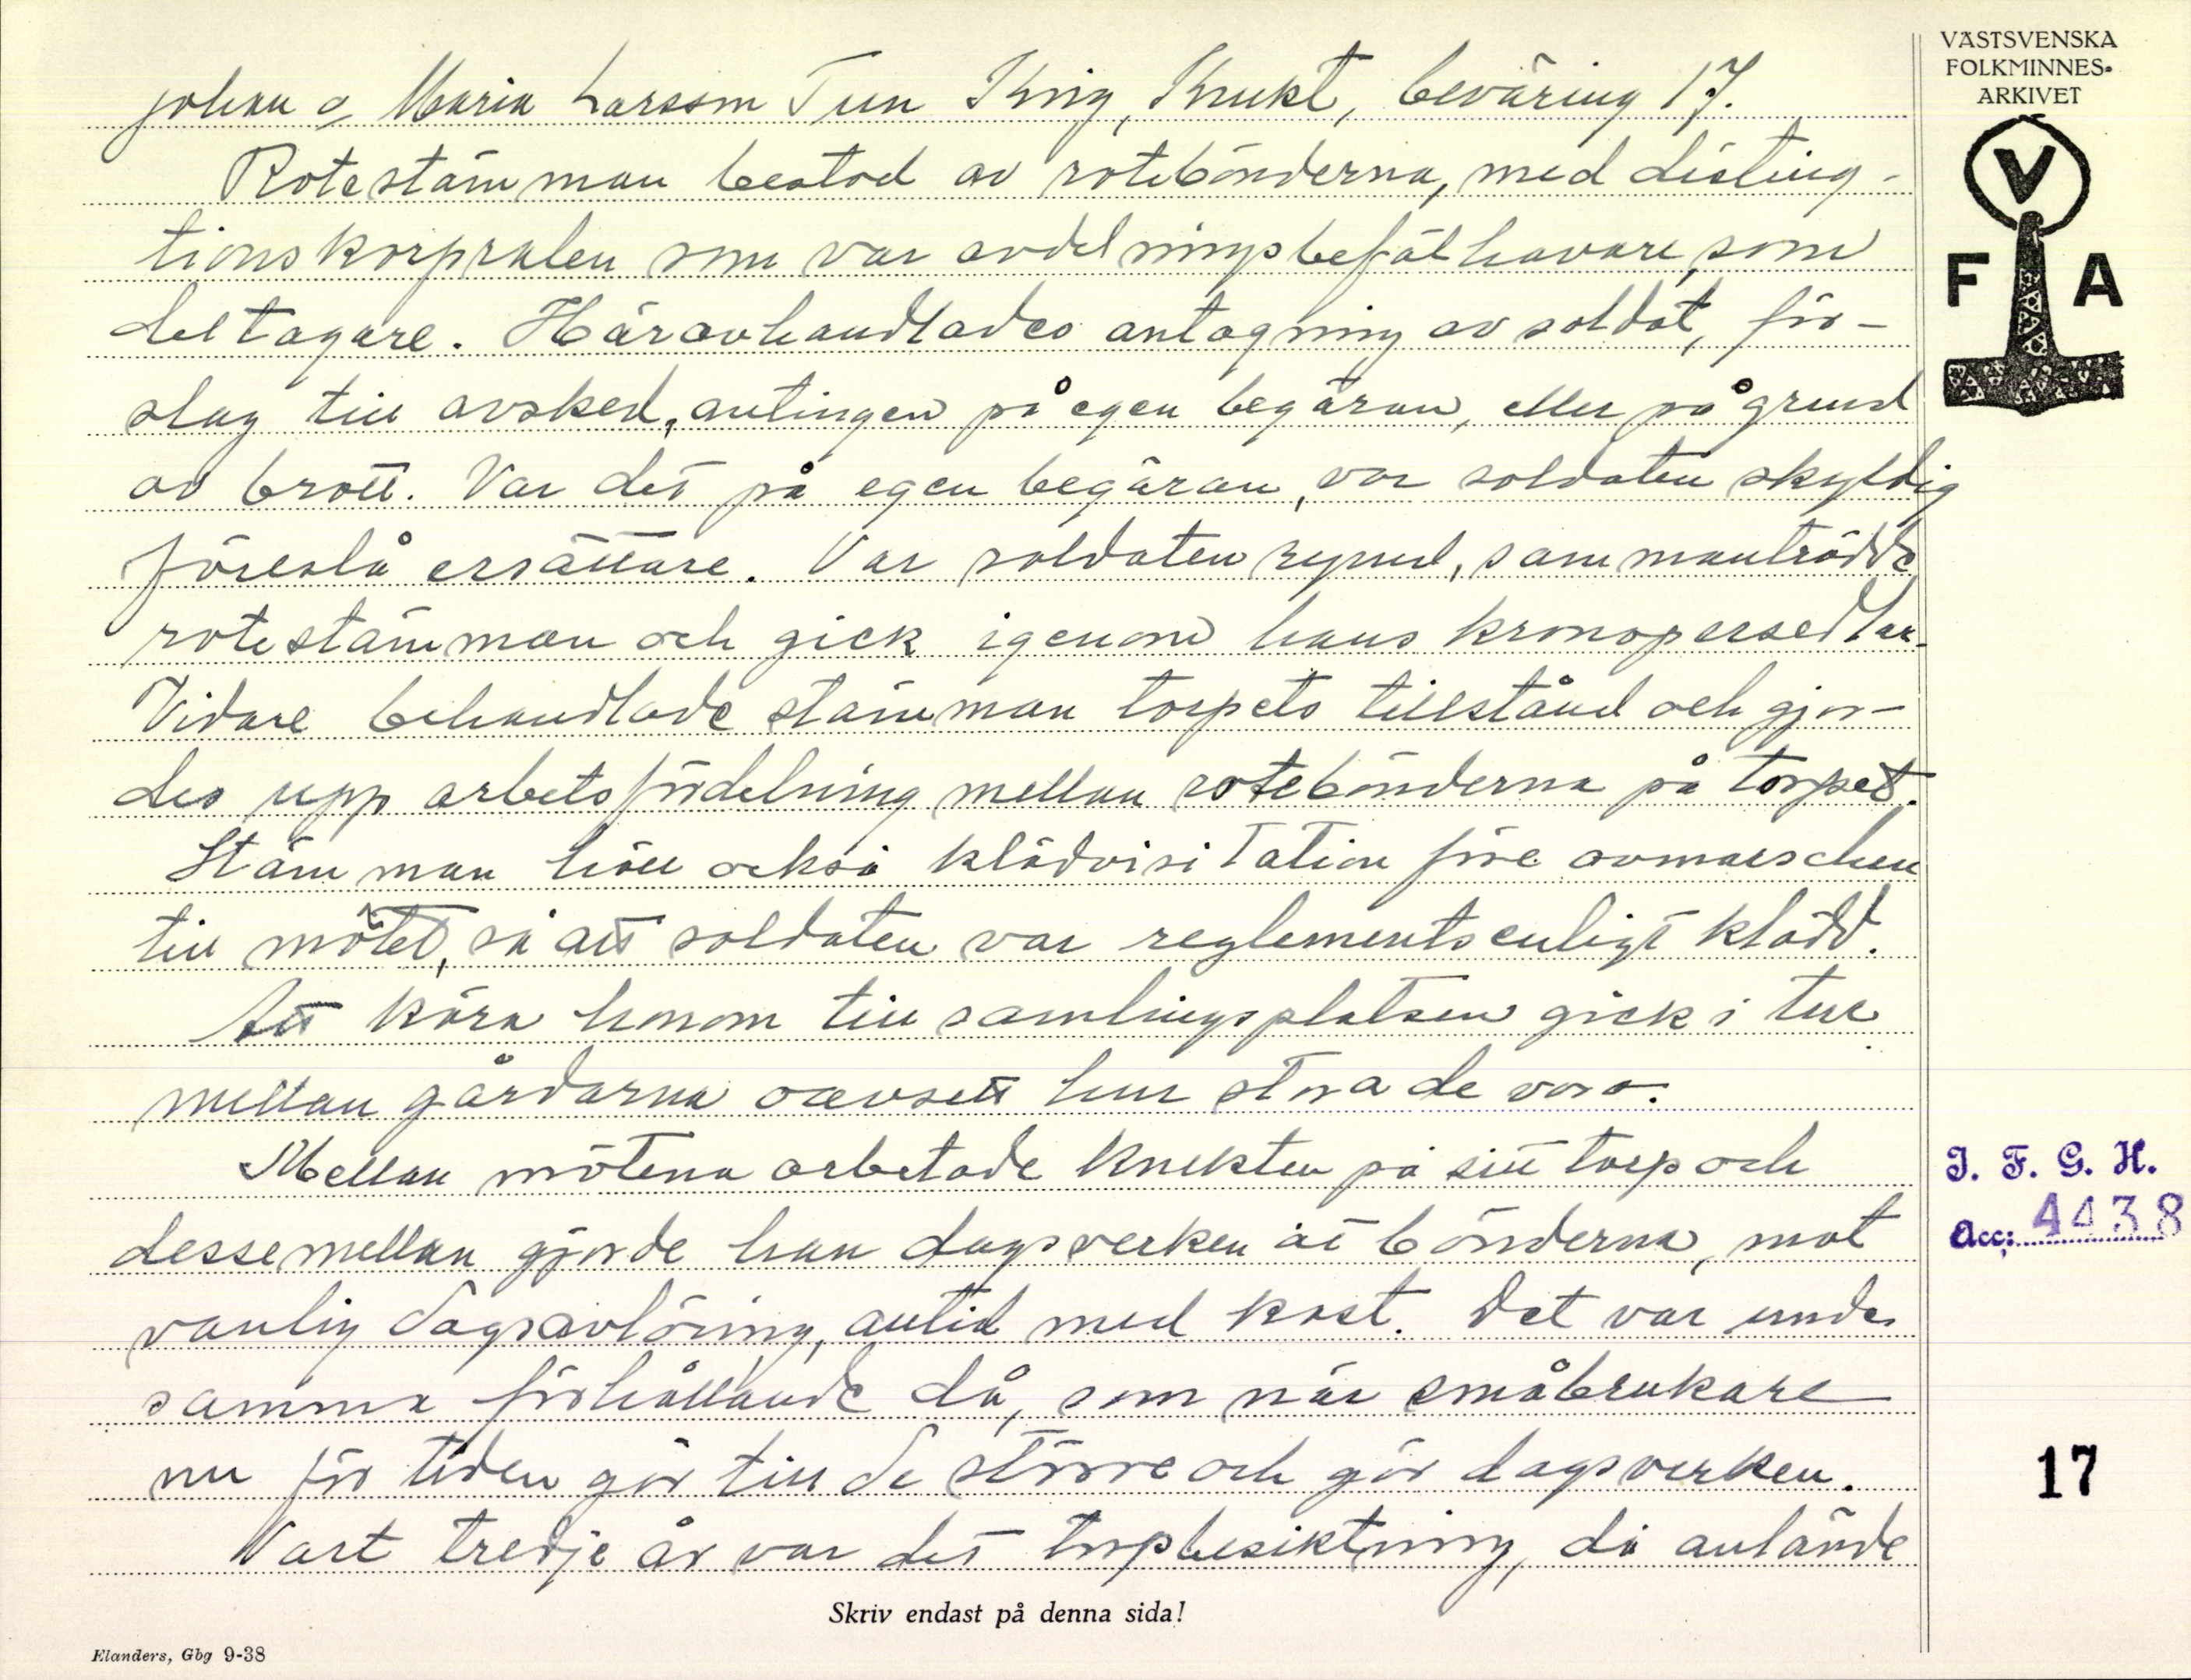 VÄSTSVENSKA
FOLKMINNES-
ARKIVET
V
F A
Johan o Maria Larsson Tun Krig, Knekt, beväring 17.
Rotestämman bestod av rotebönderna, med disting-
tionskorpralen som var avdelningsbefälhavare, som
deltagare. Häravhandlades antagning av soldat, för-
slag till avsked, antingen på egen begäran, eller på grund
av brott. Var det på egen begäran, var soldaten skyldig
föreslå ersättare. Var soldaten rymd, sammanträdde
rotestämman och gick igenom hans kronopersedlar.
Vidare behandlade stämman torpets tillstånd och gjor-
des upp arbetsfördelning mellan rotebönderna på torpet.
Stämman höll också klädvisitation före avmarschen
till mötet, så att soldaten var reglementsenligt klädd.
Att köra honom till samlingsplatsen gick i tur
mellan gårdarna oavsett hur stora de voro.
Mellan mötena arbetade knekten på sitt torp och
dessemellan gjorde han dagsverken åt bönderna, mot
vanlig dagsavlöning, alltid med kost. Det var under
samma förhållande då, som när småbrukare
nu för tiden går till de större och gör dagsverken.
Vart tredje år var det torpbesiktning, då anlände
J. F. G. H.
Acc: 4438
17
Skriv endast på denna sida!
Elanders, Gbg 9-38